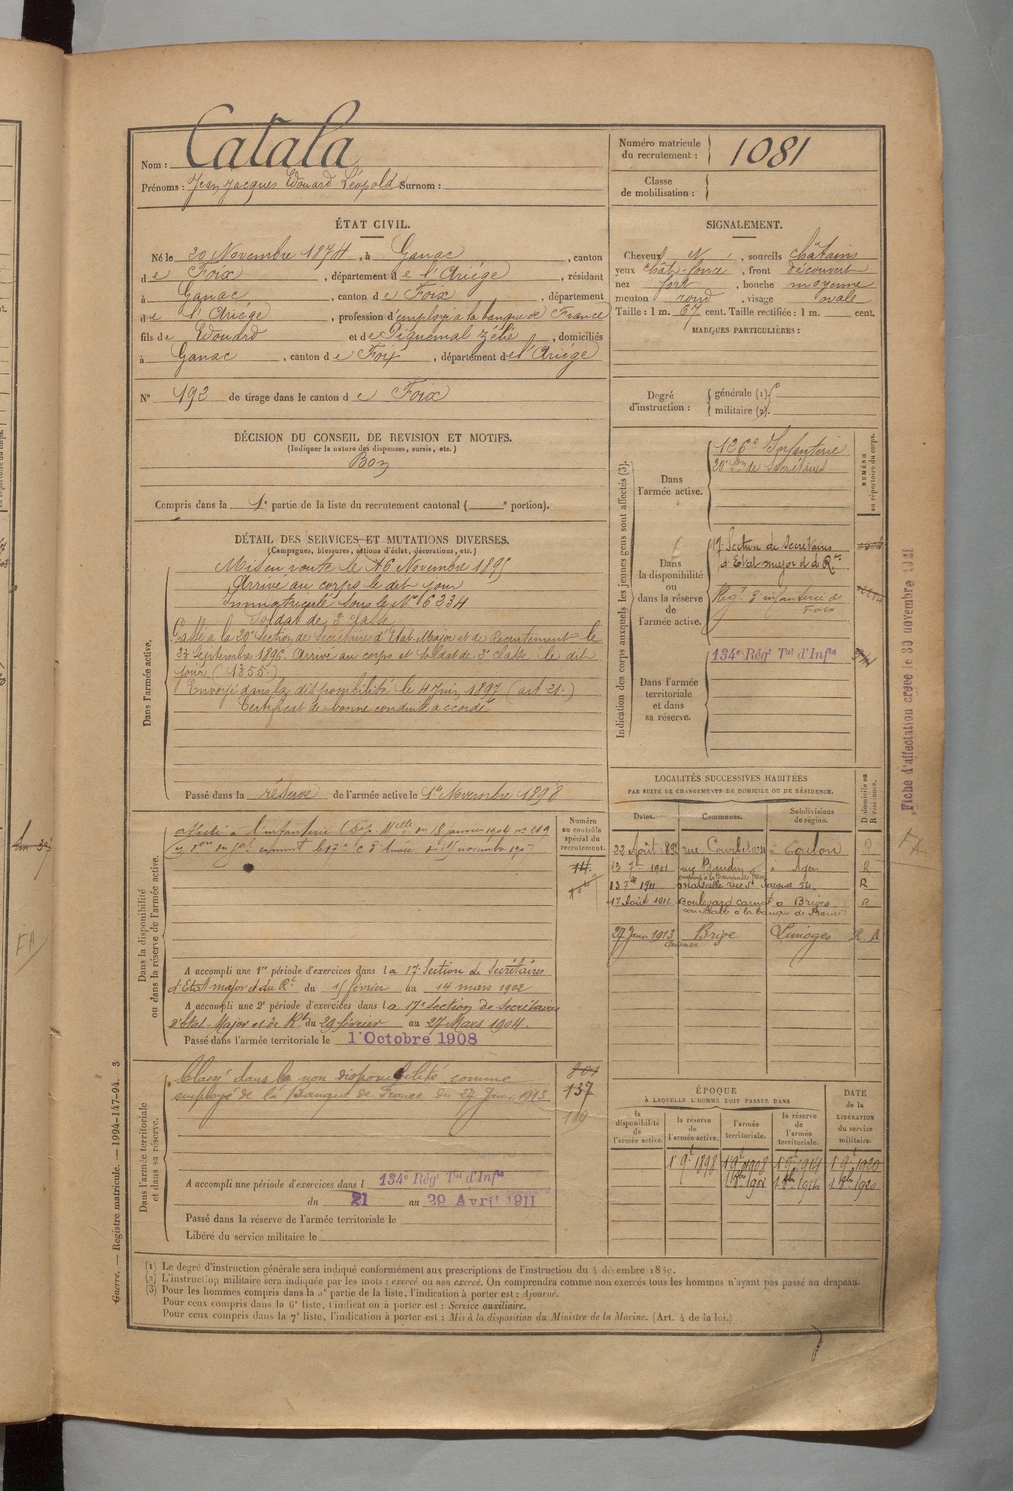 Nom : Catala
Prénoms : Jean Jacques Edouard Léopold Surnom :
Numéro matricule du recrutement : 1081
Classe de mobilisation :
ÉTAT CIVIL.
Né le 20 Novembre 1874, à Ganac, canton
de Foix, département de l'Ariège, résidant
à Ganac, canton de Foix, département
de l'Ariège, profession d'employé à la banque de France
fils de Edouard et de Piquemal Zélie, domiciliés
à Ganac, canton de Foix, département de l'Ariège
N° 192 de tirage dans le canton de Foix
SIGNALEMENT.
Cheveux N, sourcils châtains
yeux chât. foncé, front découvert
nez fort, bouche moyenne
menton rond, visage ovale
Taille : 1 m. 67 cent. Taille rectifiée : 1 m. cent.
MARQUES PARTICULIÈRES :
Degré d'instruction : générale (1)
militaire (2).
DÉCISION DU CONSEIL DE REVISION ET MOTIFS.
(Indiquer la nature des dispenses, sursis, etc.)
Bon
Compris dans la 1e partie de la liste du recrutement cantonal ( e portion).
DÉTAIL DES SERVICES ET MUTATIONS DIVERSES.
(Campagnes, blessures, actions d'éclat, décorations, etc.)
Dans l'armée active.
Mis en route le 16 Novembre 1895
Arrivé au corps le dit jour
Immatriculé sous le N° 6334
Soldat de 2e classe
Passé à la 20e Section de Secrétaires d'Etat-Major et de Recrutement le
23 Septembre 1896. Arrivé au corps et soldat de 2e classe le dit
jour (1355)
Envoyé dans la disponibilité le 4 Juin 1897 (art 21.)
Certificat de bonne conduite accordé
Passé dans la réserve de l'armée active le 1er Novembre 1898
Indication des corps auxquels les jeunes gens sont affectés (3).
NUMÉRO au répertoire du corps.
Dans l'armée active.
126e Infanterie
20e Son de Secrétaires
Dans la disponibilité ou dans la réserve de l'armée active.
17e Section de Secrétaires
d'Etat major et d Rt
Régt d'infanterie de
Foix
Dans l'armée territoriale et dans sa réserve.
134e Régt Tal d'Infie
Fiche d'affectation créée le 30 novembre 1921
FA
LOCALITÉS SUCCESSIVES HABITÉES
PAR SUITE DE CHANGEMENTS DE DOMICILE OU DE RÉSIDENCE.
Dates. Communes. Subdivisions de région. D. domicile ou R. résidence.
rue Courbet à Toulon R
rue Baudin à Agen R
13 7bre 1911 Marseille rue St Jacques R
17 Août 1912 Boulevard Carnot à Brives R
comptable à la banque de France
27 Juin 1913 Brive Limoges R
Dans la disponibilité ou dans la réserve de l'armée active.
Numéro au contrôle spécial du recrutement.
Affecté à l'infanterie (Dép. Melle du 18 janvier 1904
FA
A accompli une 1re période d'exercices dans la 17e Section de Secrétaires
d'Etat major et du Rt du 15 février au 14 mars 1902
A accompli une 2e période d'exercices dans la 17e Section de Secrétaires
d'Etat-Major et de Rt du 29 février au 27 Mars 1904.
Passé dans l'armée territoriale le 1er Octobre 1908
Dans l'armée territoriale et dans sa réserve.
Classé dans la non disponibilité comme
employé de la Banque de France du 27 Juin 1913
137
A accompli une période d'exercices dans l 134e Régt Tal d'Infie
du 21 au 29 Avril 1911
Passé dans la réserve de l'armée territoriale le
Libéré du service militaire le
ÉPOQUE
À LAQUELLE L'HOMME DOIT PASSER DANS
la disponibilité de l'armée active. la réserve de l'armée active. l'armée territoriale. la réserve de l'armée territoriale.
DATE de la LIBÉRATION du service militaire.
1er 9bre 1898 1er 9bre 1908 1er 9bre 1914 1er 9bre 1920
(1) Le degré d'instruction générale sera indiqué conformément aux prescriptions de l'instruction du 4 décembre 1889.
(2) L'instruction militaire sera indiquée par les mots : exercé ou non exercé. On comprendra comme non exercés tous les hommes n'ayant pas passé au drapeau.
(3) Pour les hommes compris dans la 5e partie de la liste, l'indication à porter est : Ajourné.
Pour ceux compris dans la 6e liste, l'indication à porter est : Service auxiliaire.
Pour ceux compris dans la 7e liste, l'indication à porter est : Mis à la disposition du Ministre de la Marine. (Art. 4 de la loi.)
Guerre. — Registre matricule. — 1994-147-94. 3